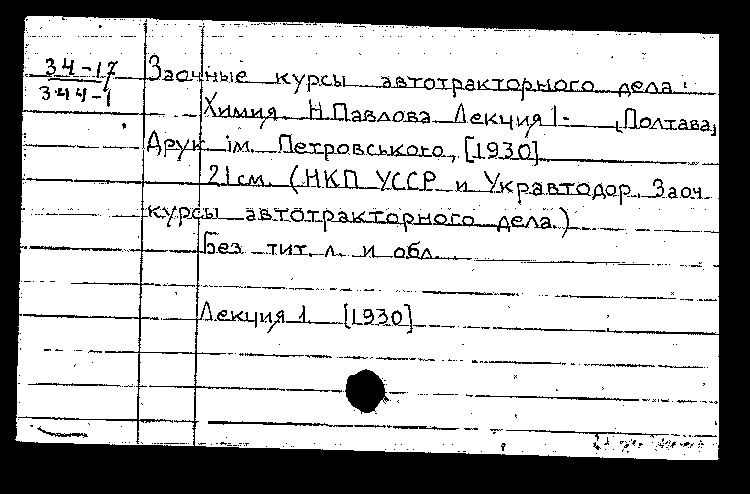 34-17
344-1
Заочные курсы автотракторного дела.
Химия. Н. Павлова Лекция 1- Полтава,
Друк. ім. Петровського, [1930]
21см. (НКП УССР и Укравтодор. Заоч.
курсы автотракторного дела.)
Без тит. л. и обл.
Лекция 1. [1930]